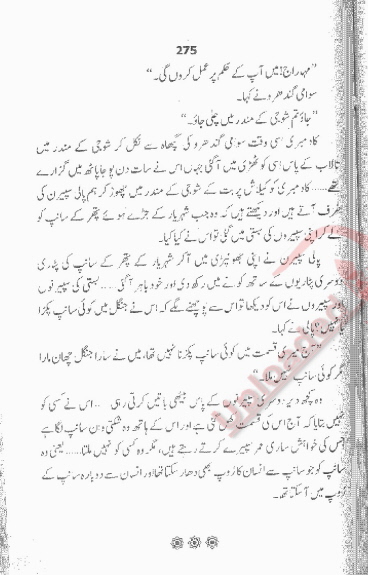 275
"مہاراج! میں آپ کے حکم پر عمل کروں گی۔"
سوامی گندھرو نے کہا۔
"جاؤ تم شوجی کے مندر میں چلی جاؤ۔"
کادمبری اسی وقت سوامی گندھرو کی گپھاہ سے نکل کر شوجی کے مندر میں
تالاب کے پاس اسی کوٹھڑی میں آ گئی جہاں اس نے سات دن پوجا پاٹھ میں گزارے
تھے..... کادمبری کو کیلاش پربت کے شوجی کے مندر میں چھوڑ کر ہم پالی سپیرن کی
طرف آتے ہیں اور دیکھتے ہیں کہ وہ جب شہریار کے جڑے ہوئے پتھر کے سانپ کو
لے کر اپنی سپیروں کی بستی میں گئی تو اس نے کیا کیا۔
پالی سپیرن نے اپنی جھونپڑی میں آ کر شہریار کے پتھر کے سانپ کی پٹاری
دوسری پٹاریوں کے ساتھ کونے میں رکھ دی اور خود باہر آ گئی..... بستی کی سپیرنوں
اور سپیروں نے اس کو دیکھا تو اس سے پوچھنے لگے کہ اس نے جنگل میں کوئی سانپ پکڑا
یا نہیں؟ پالی نے کہا۔
"آج میری قسمت میں کوئی سانپ پکڑنا نہیں تھا، میں نے سارا جنگل چھان مارا
مگر کوئی سانپ نہیں ملا۔"
وہ کچھ دیر دوسری سپیرنوں کے پاس بیٹھی باتیں کرتی رہی..... اس نے کسی کو
نہیں بتایا کہ آج اس کی قسمت کھل گئی ہے اور اس کے ہاتھ وہ سانپ لگا ہے
جس کی خواہش ساری عمر سپیرے کرتے رہتے ہیں، مگر وہ کسی کو نہیں ملتا..... یعنی وہ
سانپ کو جو سانپ سے انسان کا روپ بھی دھار سکتا تھا اور انسان سے دوبارہ سانپ کے
روپ میں آ سکتا تھا۔
Uploaded